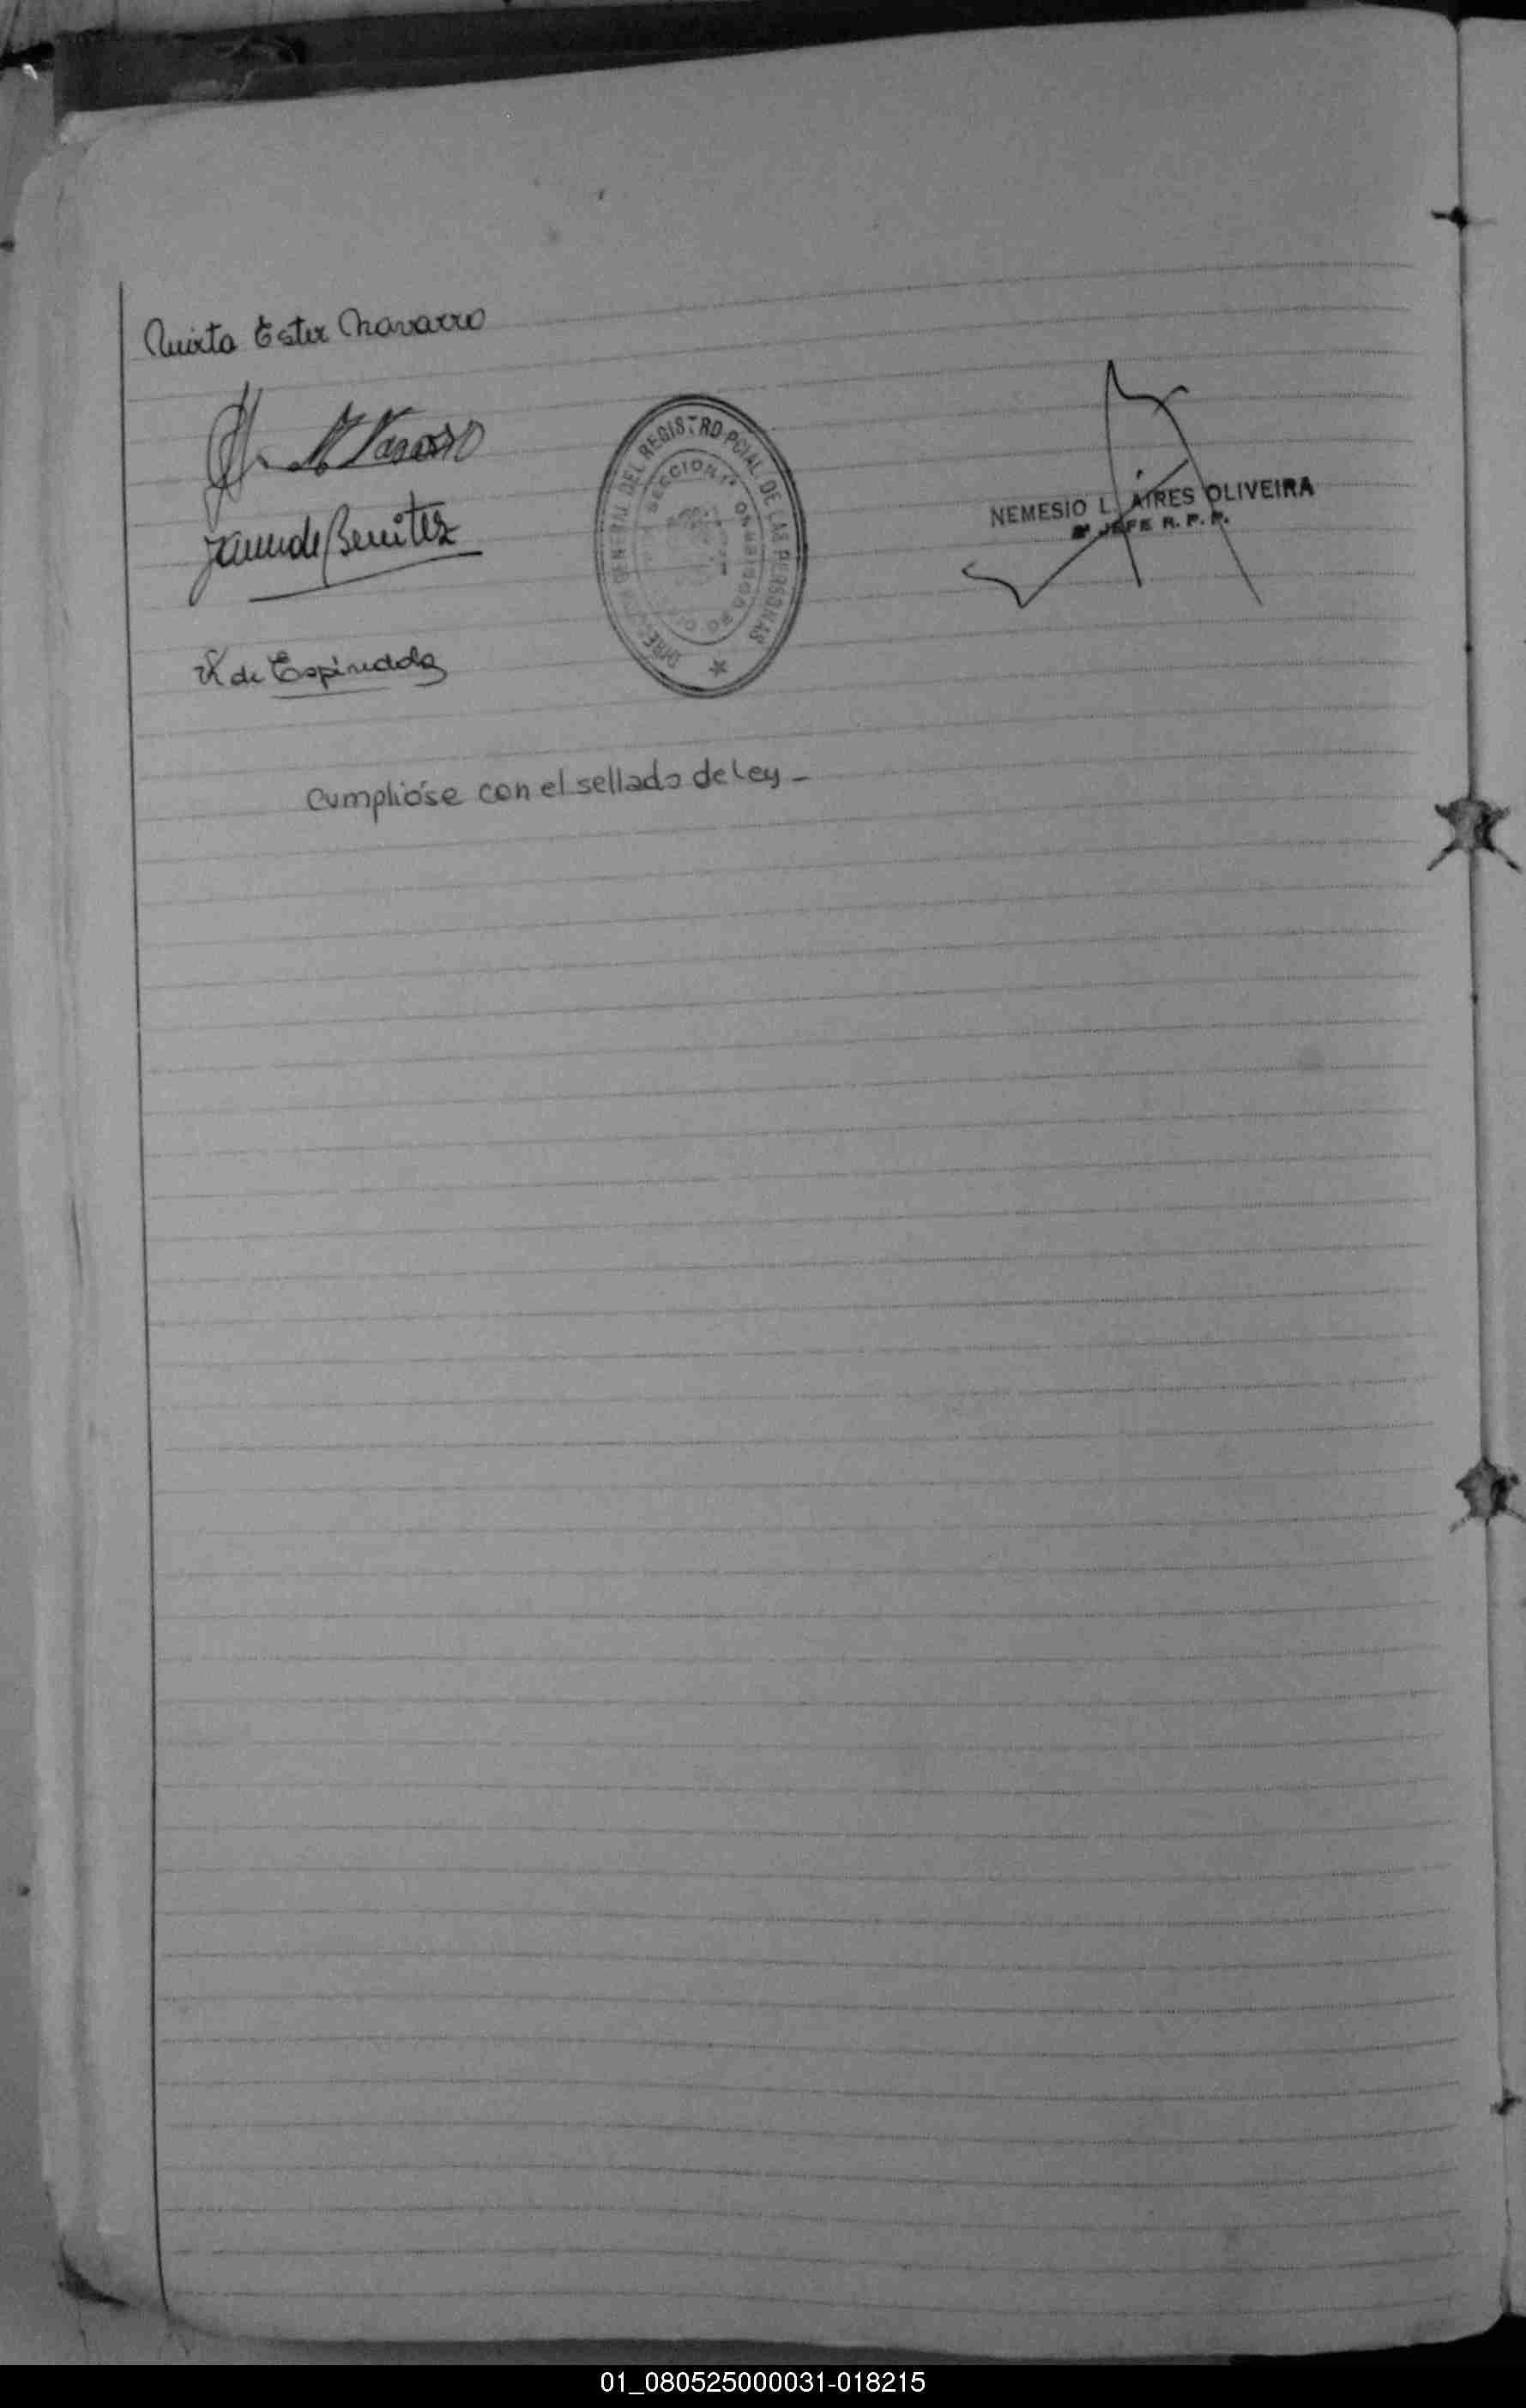 Quinta Ester Navarro
Navarro
de Benitez
de Espindola
DIRECCION GENERAL DEL REGISTRO PCIAL. DE LAS PERSONAS
SECCION 1ª
NEMESIO L. AIRES OLIVEIRA
JEFE R. P. P.
Cumplióse con el sellado de Ley -
01_080525000031-018215